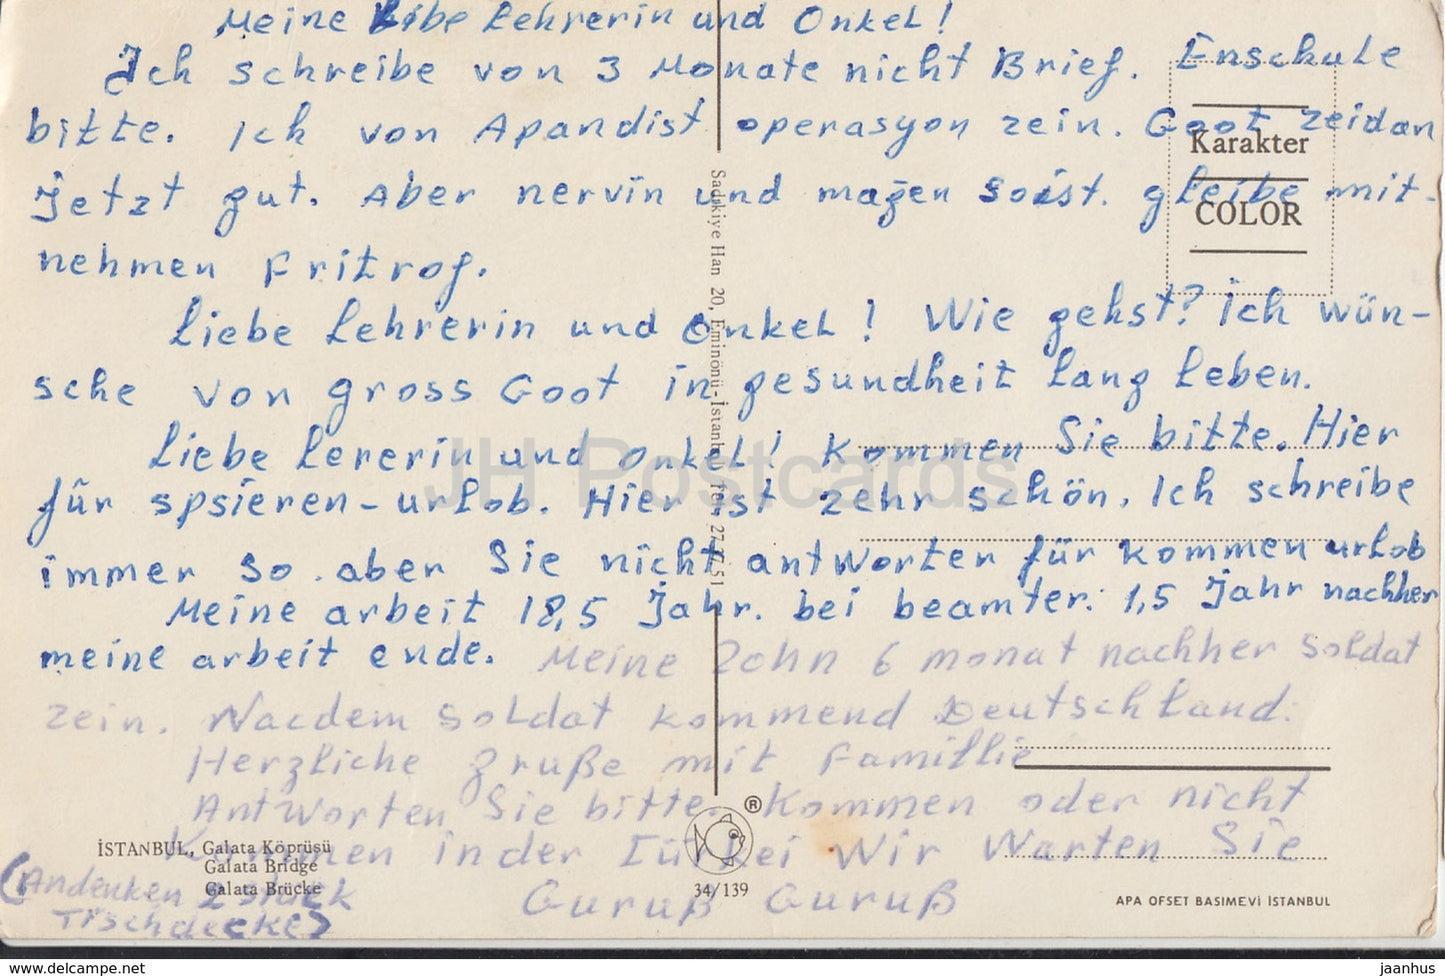 Meine Libe Lehrerin und Onkel!
Ich schreibe von 3 Monate nicht Brief. Enschule
bitte. Ich von Apandist operasyon zein. Goot zeidan
Jetzt gut. Aber nervin und magen soist. gleibe mit-
nehmen Fritrof.
Liebe Lehrerin und Onkel! Wie gehst? ich wün-
sche von gross Goot in gesundheit lang leben.
Liebe Lererin und Onkel! Kommen Sie bitte. Hier
für spsieren-urlob. Hier ist zehr schön. Ich schreibe
immer so. aber Sie nicht antworten für kommen urlob
Meine arbeit 18,5 Jahr. bei beamter. 1,5 Jahr nachher
meine arbeit ende. Meine Zohn 6 monat nachher Soldat
zein. Nacdem Soldat kommend Deutschland.
Herzliche gruße mit Famillie
Antworten Sie bitte. Kommen oder nicht
Kommen in der Türkei Wir Warten Sie
Guruß Guruß
(Andenken 2 stück
Tischdecke)
Karakter
COLOR
Sadıkiye Han 20, Eminönü-İstanbul Tel: 27 51
İSTANBUL, Galata Köprüsü
Galata Bridge
Galata Brücke
®
34/139
APA OFSET BASIMEVİ İSTANBUL
JH Postcards
www.delcampe.net
jaanhus